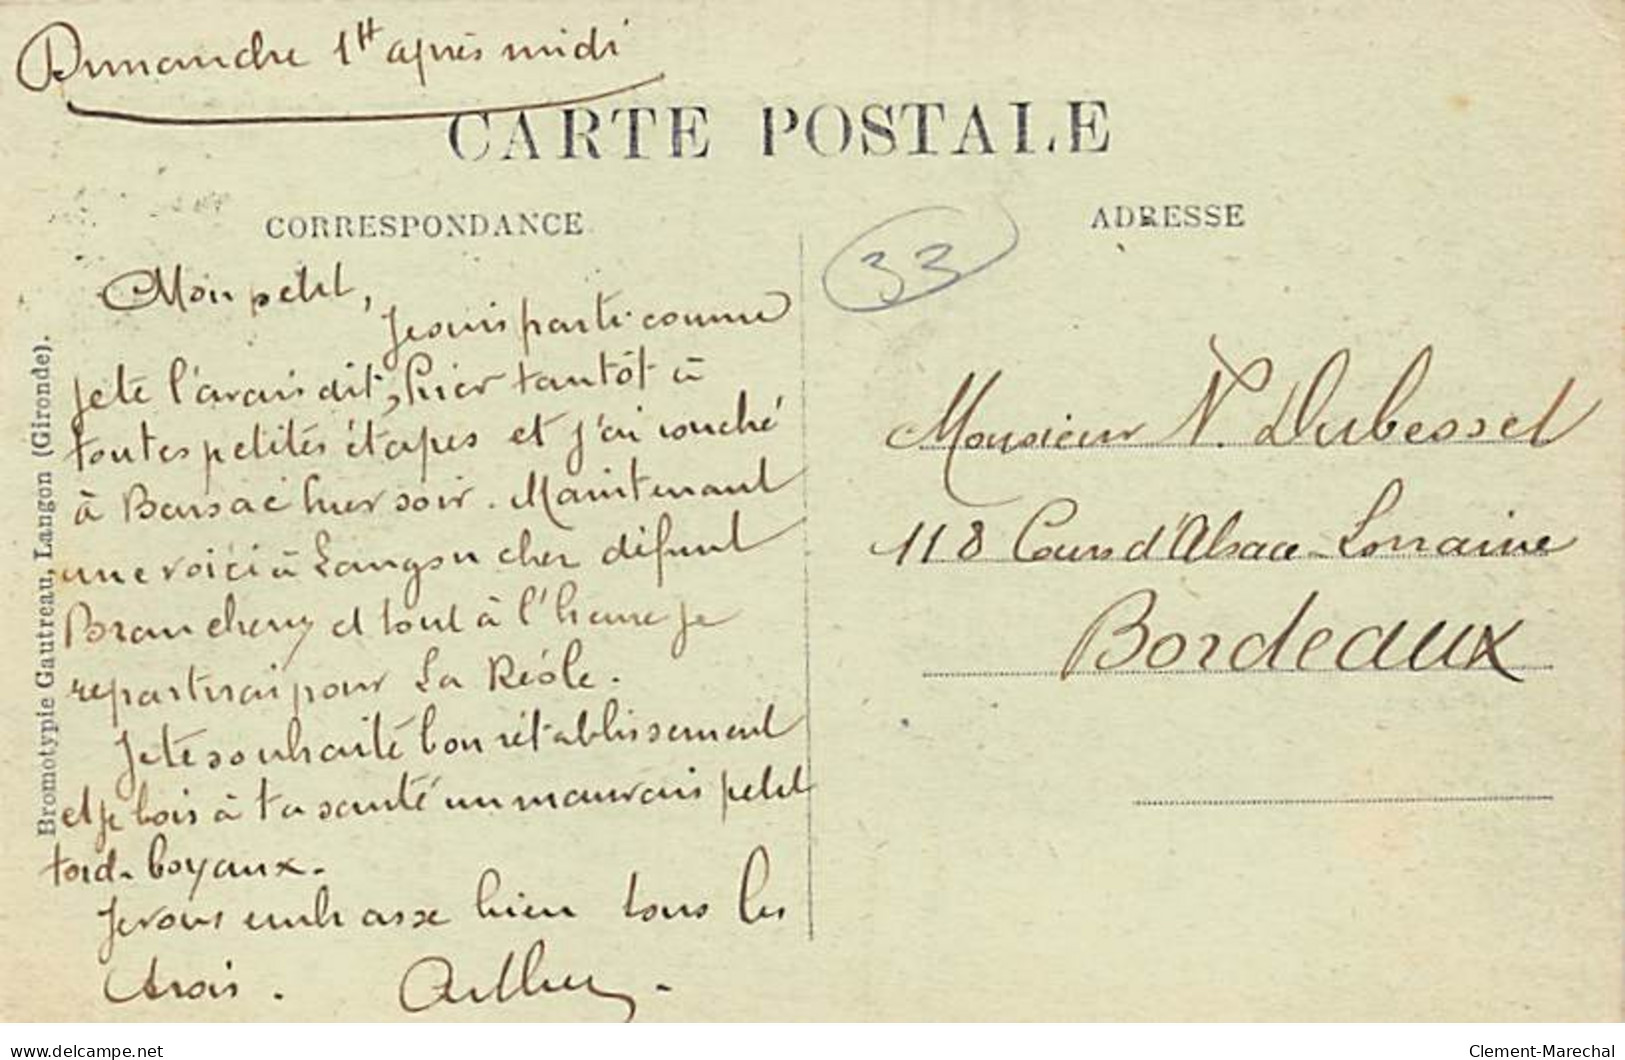 Dimanche 1H après midi
CARTE POSTALE
CORRESPONDANCE
ADRESSE
33
Mon petit,
Je suis parti comme
je te l'avais dit, hier tantôt à
toutes petites étapes et j'ai couché
à Barsac hier soir. Maintenant
me voici à Langon cher défunt
et tout à l'heure je
repartirai pour La Réole.
Je te souhaite bon rétablissement
et je bois à ta santé un mauvais petit
tord-boyaux.
Je vous embrasse bien tous les
trois.
Monsieur N. Dubesset
118 Cours d'Alsace-Lorraine
Bordeaux
Bromotypie Gautreau, Langon (Gironde).
delcampe.net
Clement-Marechal